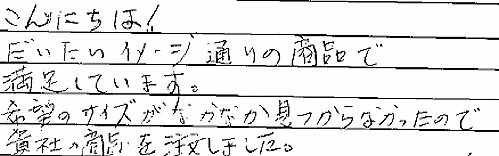 こんにちは!
だいたいイメージ通りの商品で
満足しています。
希望のサイズがなかなか見つからなかったので
貴社の商品を注文しました。